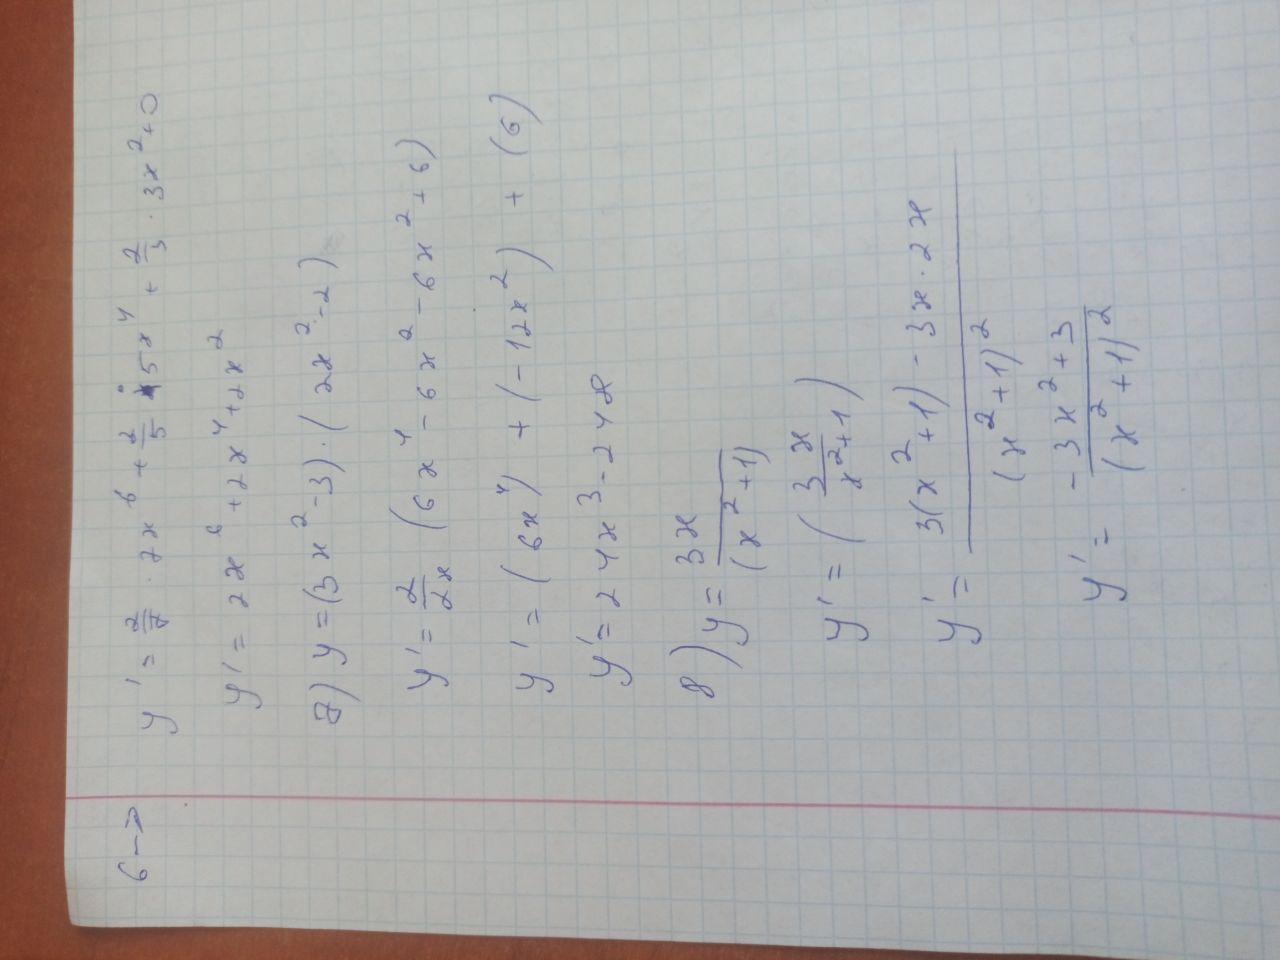 6 ->
y' = 2/7 · 7x⁶ + 2/5 · 5x⁴ + 2/3 · 3x² + 0
y' = 2x⁶ + 2x⁴ + 2x²
7) y = (3x² - 3) · (2x² - 2)
y' = 2/2x (6x⁴ - 6x² - 6x² + 6)
y' = (6x⁴) + (-12x²) + (6)
y' = 24x³ - 24x
8) y = 3x/(x² + 1)
y' = (3x/x² + 1)
y' = 3(x² + 1) - 3x · 2x/(x² + 1)²
y' = -3x² + 3/(x² + 1)²